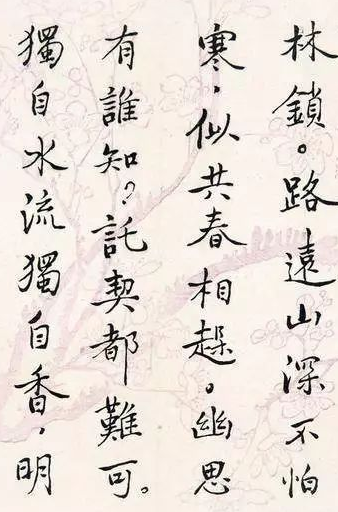 林鎖。路遠山深不怕
寒，似共春相趓。幽思
有誰知？託契都難可。
獨自水流獨自香，明